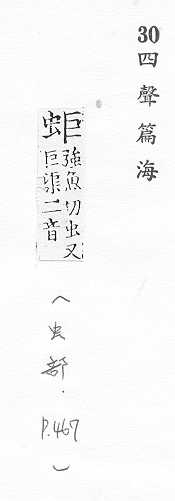 30四聲篇海
蚷強魚切虫又
巨渠二音
(虫部.P.467)